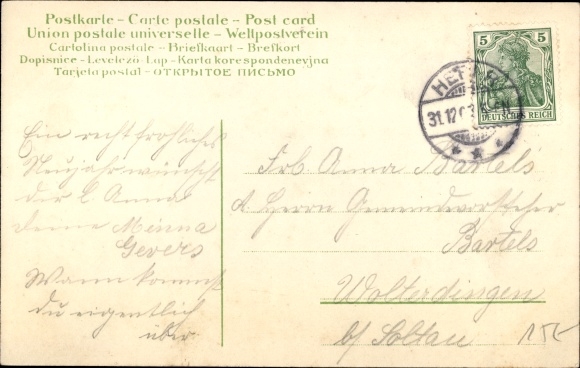 Postkarte – Carte postale – Post card
Union postale universelle – Weltpostverein
Cartolina postale – Briefkaart – Brefkort
Dopisnice – Levelező-Lap – Karta korespondencyjna
Tarjeta postal – ОТКРЫТОЕ ПИСЬМО
5 5
DEUTSCHES REICH
31.12.03
Ein recht fröhliches
Neujahr wünscht
der l. Anna
deine Minna
Gevers
Wann kommst
du eigentlich
über
Frl. Anna Bartels
d. Herrn Gemeindevorsteher
Bartels
Wolterdingen
b/ Soltau